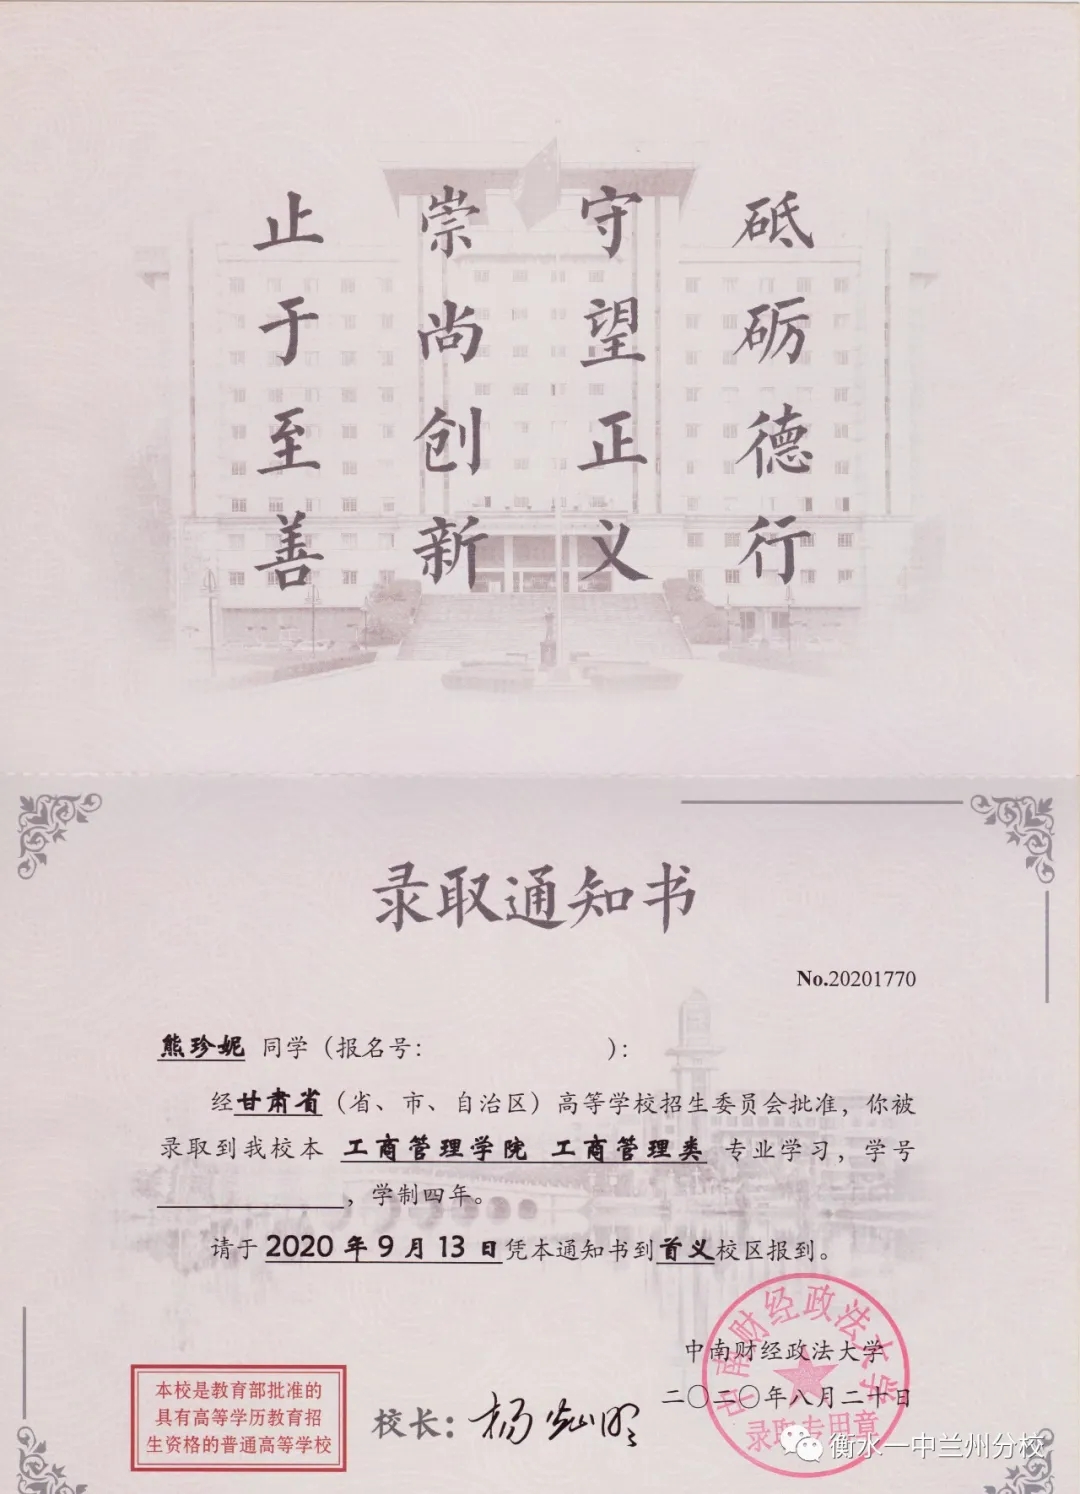 砥砺德行
守望正义
崇尚创新
止于至善
录取通知书
No.20201770
熊珍妮 同学（报名号： ）：
经甘肃省（省、市、自治区）高等学校招生委员会批准，你被
录取到我校本 工商管理学院 工商管理类 专业学习，学号
，学制四年。
请于 2020 年 9 月 13 日凭本通知书到首义校区报到。
中南财经政法大学
二〇二〇年八月二十日
中南财经政法大学
录取专用章
校长：杨灿明
本校是教育部批准的
具有高等学历教育招
生资格的普通高等学校
衡水一中兰州分校